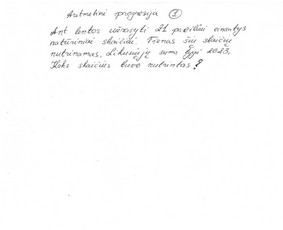 Aritmetinė progresija 1
Ant lentos užrašyti 21 paeiliui einantys
natūriniai skaičiai. Vienas šių skaičių
nutrinamas. Likusiųjų suma lygi 2023.
Koks skaičius buvo nutrintas?